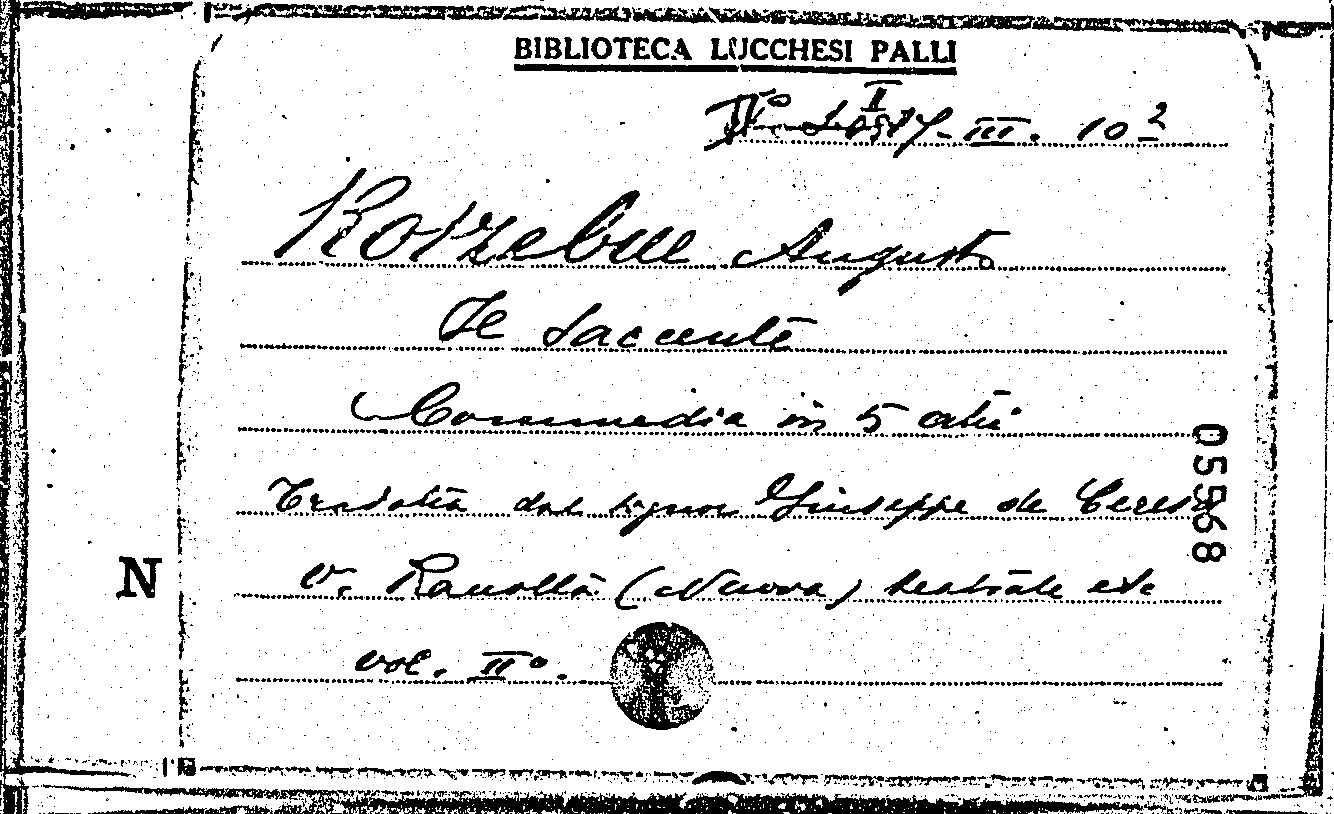 BIBLIOTECA LUCCHESI PALLI
II III. 10 2
Kotzebue Augusto
Il Saccente
Commedia in 5 atti
Tradotta dal signor Giuseppe de Ceresa
v. Raccolta (Nuova) teatrale etc
vol. II°.
N
05568